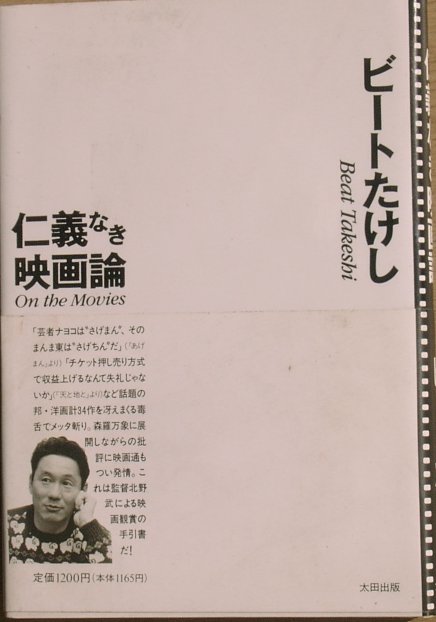 ビートたけし
Beat Takeshi
仁義なき
映画論
On the Movies
「芸者ナヨコは"さげまん"、その
まんま東は"さげちん"だ」(「あげ
まん」より)「チケット押し売り方式
で収益上げるなんて失礼じゃな
いか」(「天と地と」より)など話題の
邦・洋画計34作を冴えまくる毒
舌でメッタ斬り。森羅万象に展
開しながらの批
評に映画通も
つい発情。こ
れは監督北野
武による映
画観賞の
手引書
だ!
定価1200円(本体1165円)
太田出版